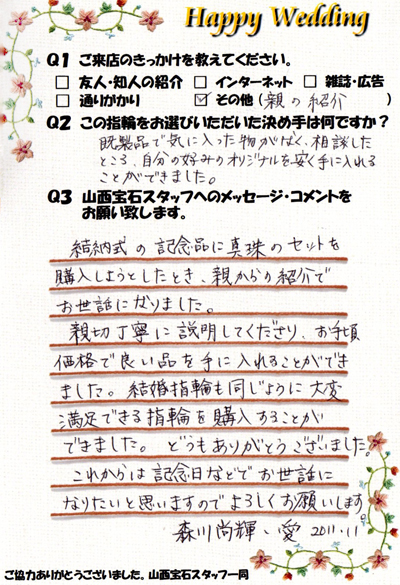 Happy Wedding
Q1 ご来店のきっかけを教えてください。
□ 友人・知人の紹介 □ インターネット □ 雑誌・広告
□ 通りがかり ☑ その他(親の紹介 )
Q2 この指輪をお選びいただいた決め手は何ですか?
既製品で気に入った物がなく、相談した
ところ、自分の好みのオリジナルを安く手に入れる
ことができました。
Q3 山西宝石スタッフへのメッセージ・コメントを
お願い致します。
結納式の記念品に真珠のセットを
購入しようとしたとき、親からの紹介で
お世話になりました。
親切丁寧に説明してくださり、お手頃
価格で良い品を手に入れることができ
ました。結婚指輪も同じように大変
満足できる指輪を購入することが
できました。どうもありがとうございました。
これからは記念日などでお世話に
なりたいと思いますのでよろしくお願いします。
森川尚輝、愛 2011.11
ご協力ありがとうございました。山西宝石スタッフ一同